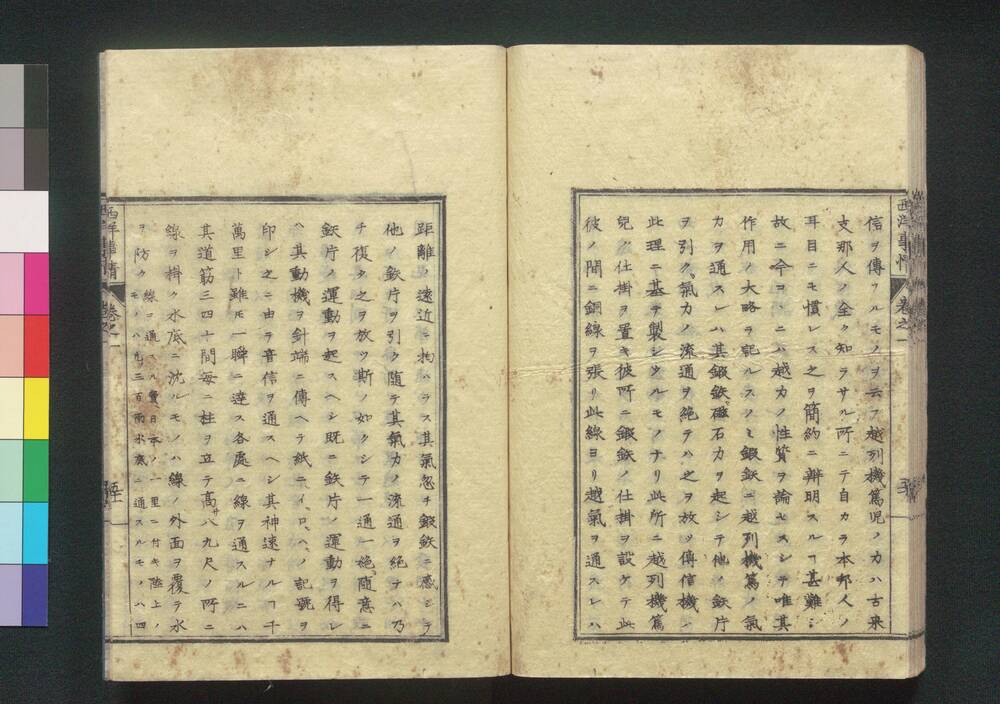 西洋事情 卷之一
信ヲ傳フルモノヲ云フ越列機篤兒ノ力ハ古來
支那人ノ全ク知ラサル所ニテ自カラ本邦人ノ
耳目ニモ慣レス之ヲ簡約ニ辨明スルヿ甚難シ
故ニ今コヽニハ越力ノ性質ヲ論セスシテ唯其
作用ノ大略ヲ記ルスノミ鍛鉄ニ越列機篤ノ氣
力ヲ通スレハ其鍛鉄磁石力ヲ起シテ他ノ鉄片
ヲ引ク、氣力ノ流通ヲ絶テハ之ヲ放ツ傳信機ハ
此理ニ基テ製シタルモノナリ此所ニ越列機篤
兒ノ仕掛ヲ置キ彼所ニ鍛鉄ノ仕掛ヲ設ケテ此
彼ノ間ニ銅線ヲ張リ此線ヨリ越氣ヲ通スレハ
距離ノ遠近ニ拘ハラス其氣忽チ鍛鉄ニ感シテ
他ノ鉄片ヲ引ク隨テ其氣力ノ流通ヲ絶ナハ乃
チ復タ之ヲ放ツ斯ノ如クシテ一通一絶、隨意ニ
鉄片ノ運動ヲ起スヘシ既ニ鉄片ノ運動ヲ得レ
ハ其動機ヲ針端ニ傳ヘテ紙ニイ、ロ、ハ、ノ記號ヲ
印シ之ニ由テ音信ヲ通スヘシ其神速ナルヿ千
萬里ト雖𪜈一瞬ニ達ス各處ニ線ヲ通スルニハ
其道筋三四十間毎ニ柱ヲ立テ高サ八九尺ノ所ニ
線ヲ掛ク水底ニ沈ルモノハ線ノ外面ヲ覆テ水
ヲ防ク
線ヲ通スル費日本ノ一里ニ付キ陸上ノ
モノハ凡ソ三百兩水底ニ通スルモノハ四
西洋事情 卷之一